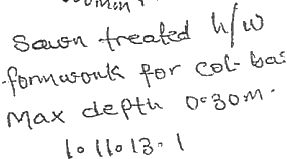 Sawn treated h/w
formwork for col- bas
Max depth 0.30m.
1.11.13.1